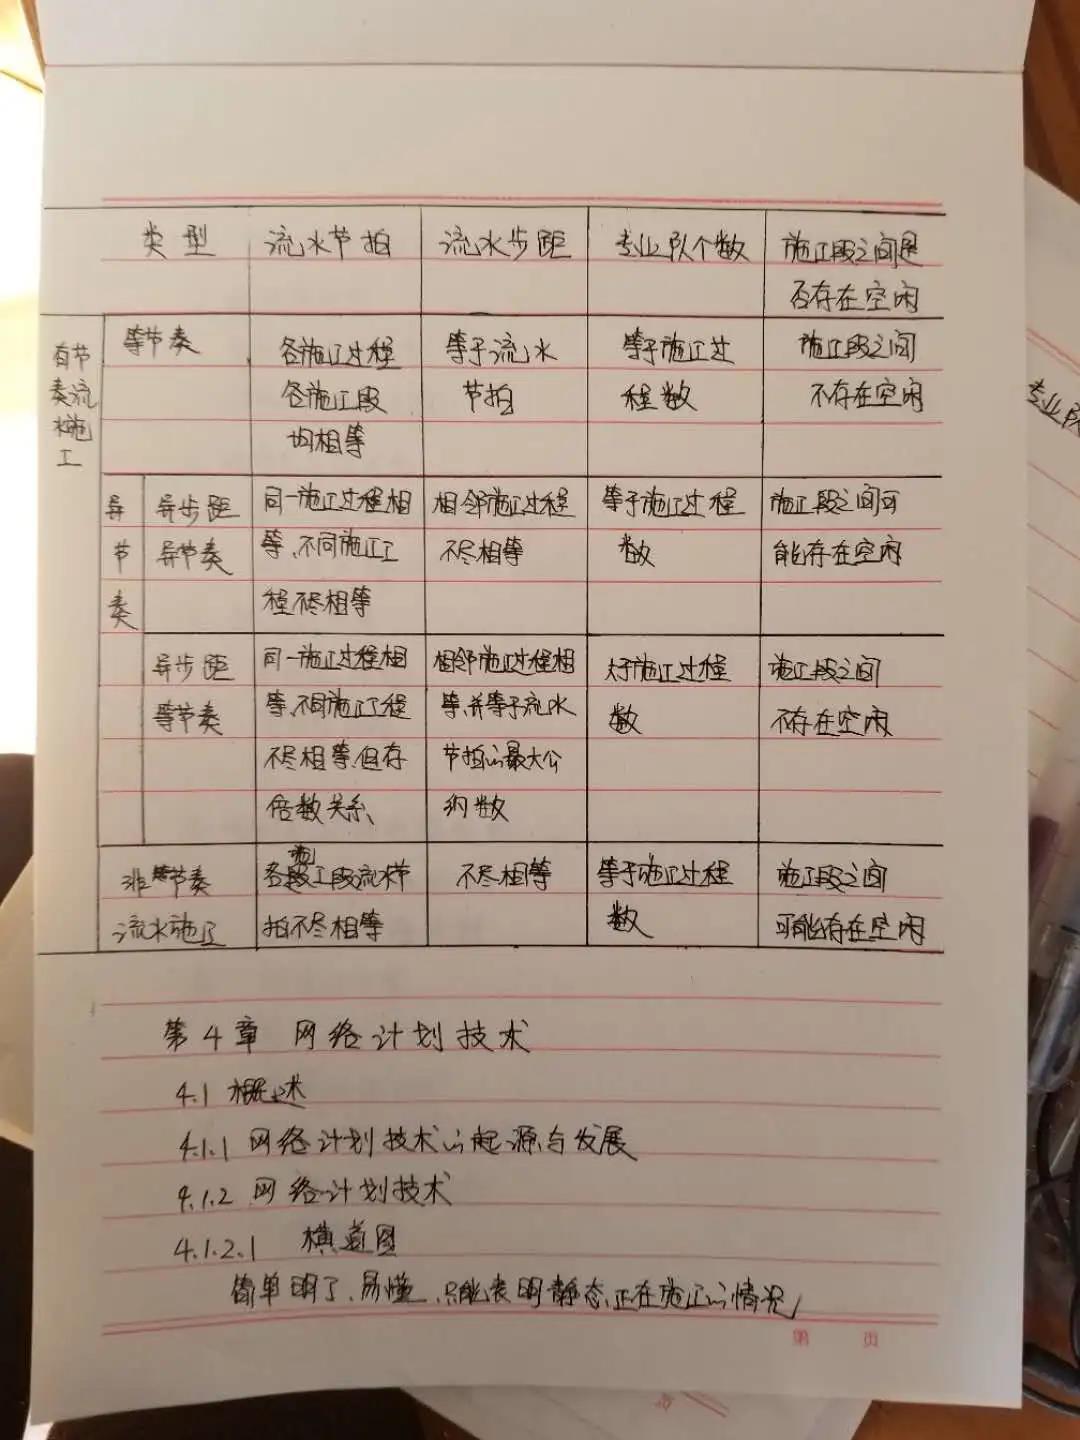 类型 流水节拍 流水步距 专业队个数 施工段之间是
否存在空闲
有节 等节奏 各施工过程 等于流水 等于施工过 施工段之间
奏流 各施工段 节拍 程数 不存在空闲
水施 均相等
工
异 异步距 同一施工过程相 相邻施工过程 等于施工过程 施工段之间可
节 异节奏 等、不同施工工 不尽相等 数 能存在空闲
奏 程不尽相等
异步距 同一施工过程相 相邻施工过程相 大于施工过程 施工段之间
等节奏 等、不同施工工程 等、并等于流水 数 不存在空闲
不尽相等、但存 节拍的最大公
倍数关系、 约数
非节奏 各施工段流水节 不尽相等 等于施工过程 施工段之间
流水施工 拍不尽相等 数 可能存在空闲
专业队
第4章 网络计划技术
4.1 概述
4.1.1 网络计划技术的起源与发展
4.1.2 网络计划技术
4.1.2.1 横道图
简单明了、易懂、只能表明静态、正在施工的情况
第 页